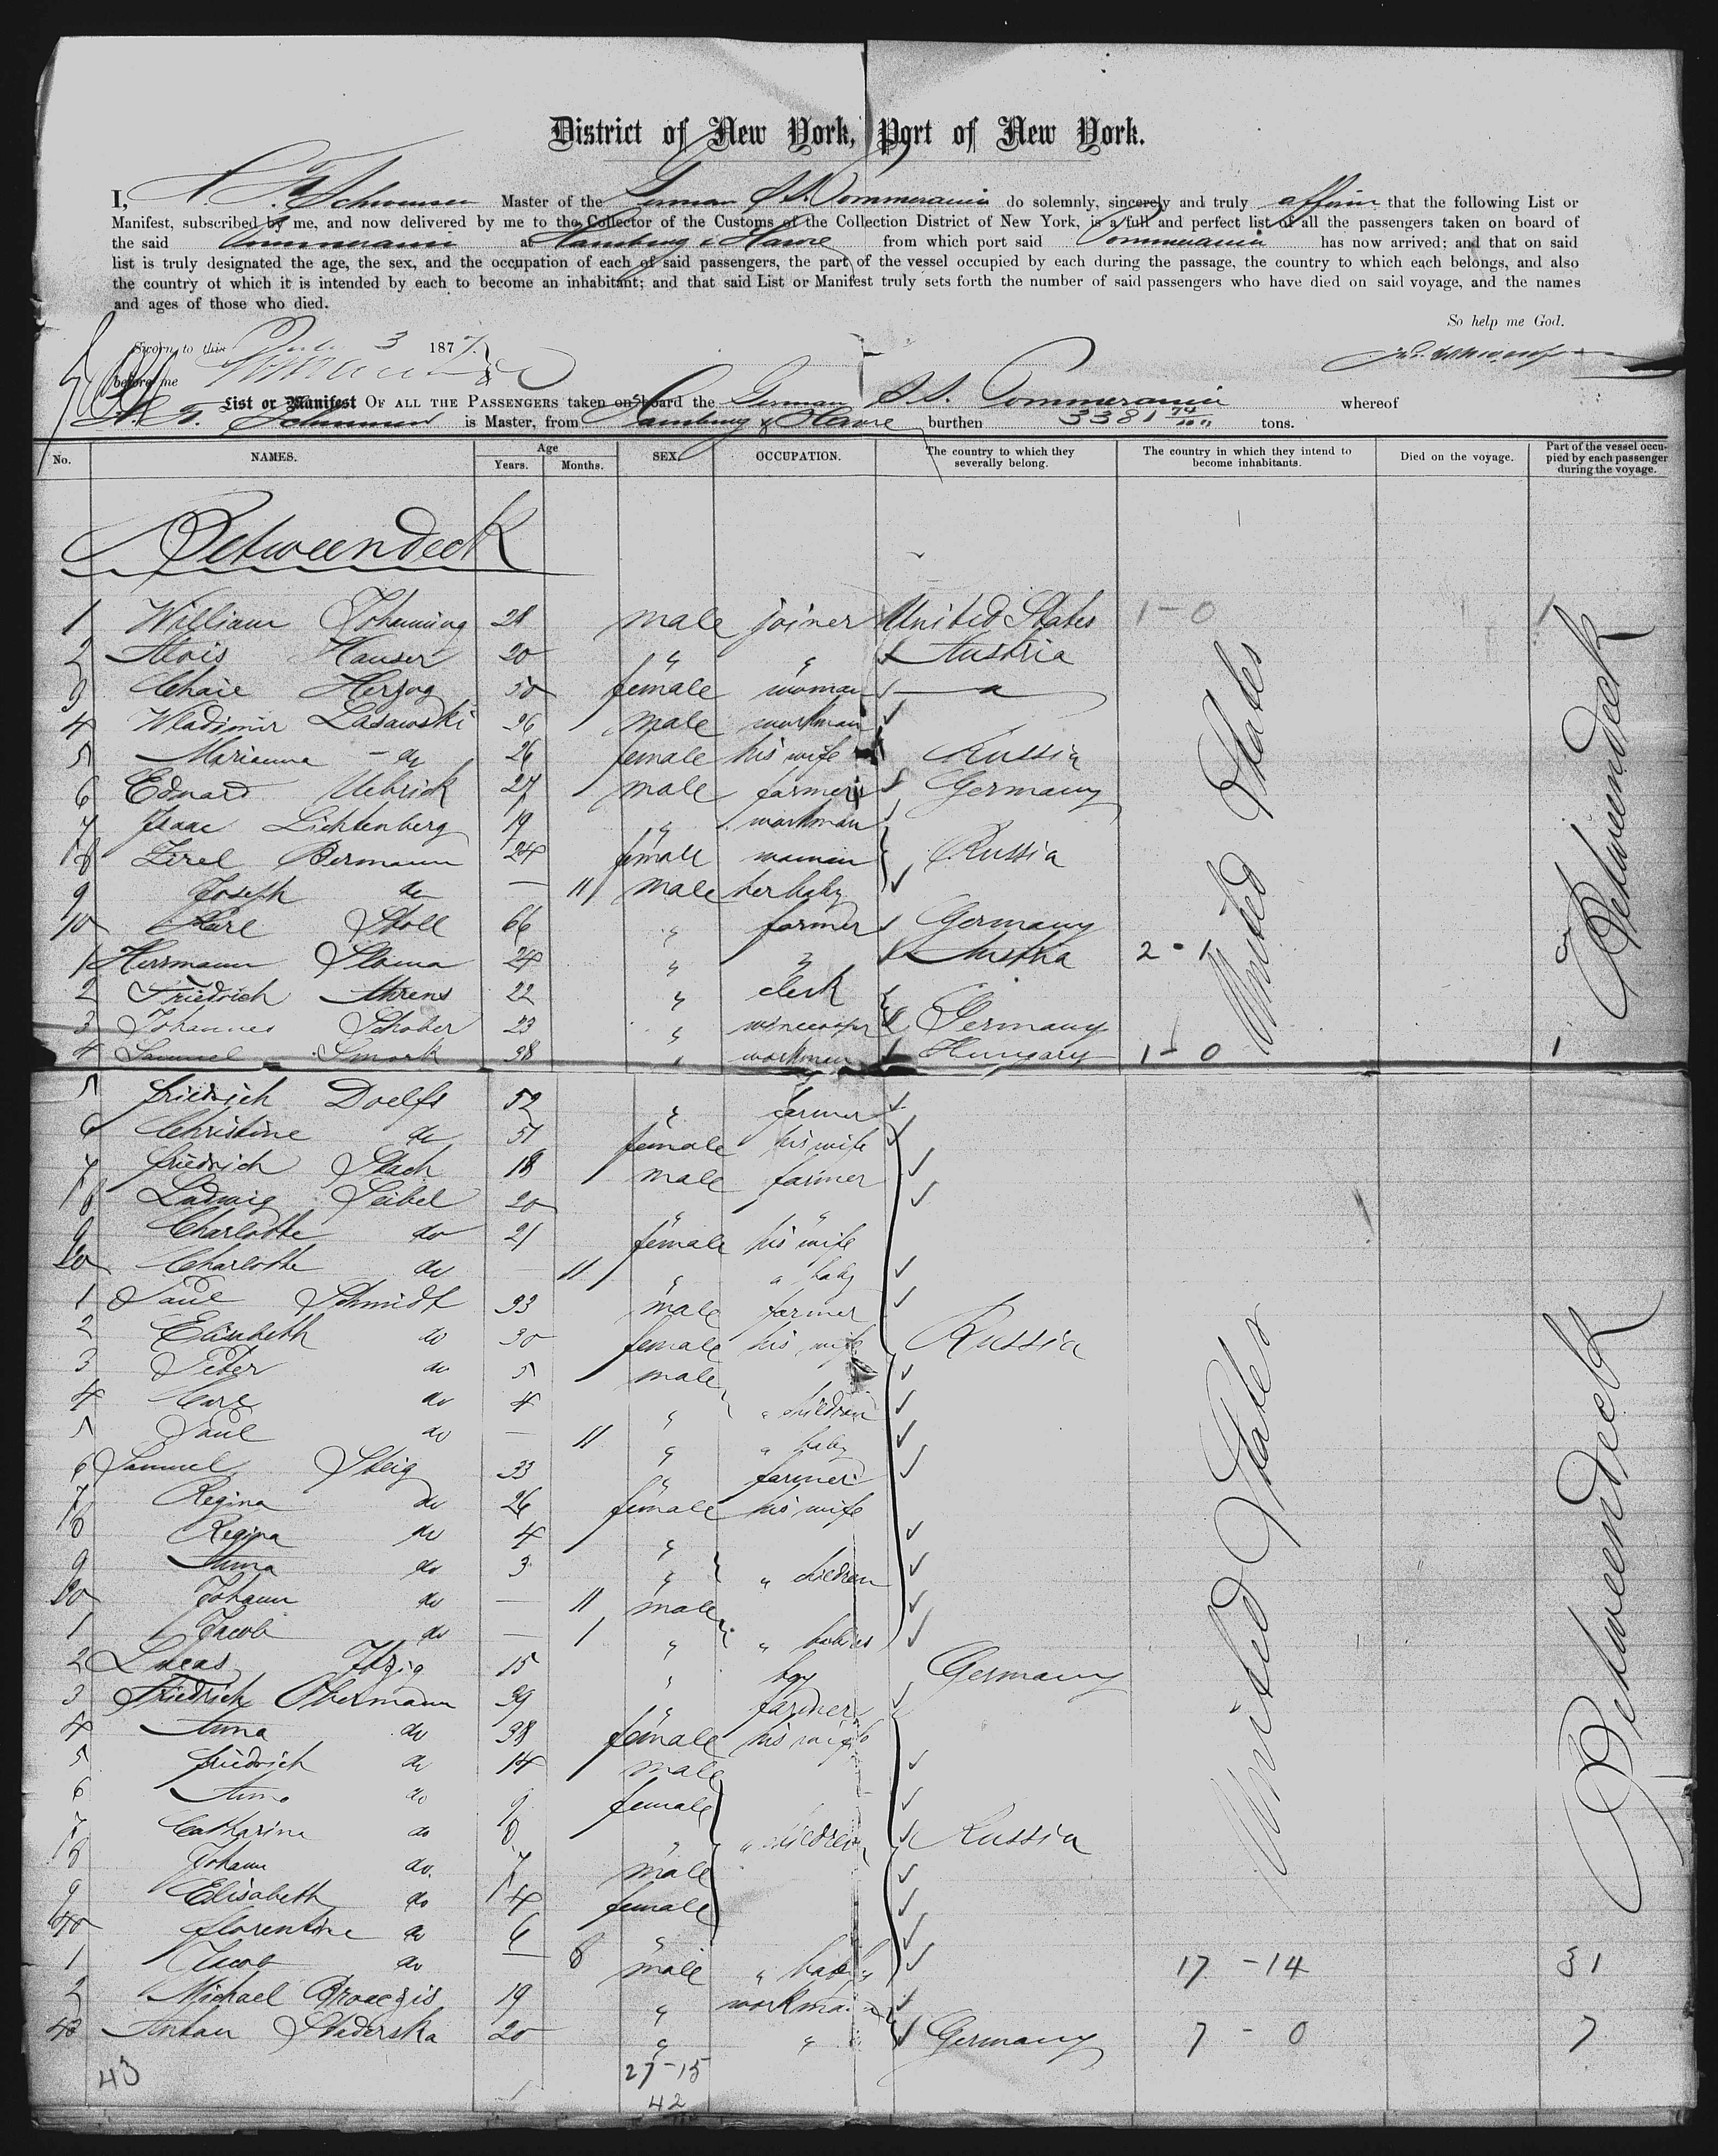 District of New York, Port of New York.
I, Schwensen Master of the German S.S. Pommerania do solemnly, sincerely and truly affirm that the following List or
Manifest, subscribed by me, and now delivered by me to the Collector of the Customs of the Collection District of New York, is a full and perfect list of all the passengers taken on board of
the said Pommerania at Hamburg & Havre from which port said Pommerania has now arrived; and that on said
list is truly designated the age, the sex, and the occupation of each of said passengers, the part of the vessel occupied by each during the passage, the country to which each belongs, and also
the country of which it is intended by each to become an inhabitant; and that said List or Manifest truly sets forth the number of said passengers who have died on said voyage, and the names
and ages of those who died.
So help me God.
Sworn to this 3 1877
before me
List or Manifest OF ALL THE PASSENGERS taken on board the German S.S. Pommerania whereof
Schwensen is Master, from Hamburg & Havre burthen 3381 74/100 tons.
No. NAMES. Age Years. Months. SEX. OCCUPATION. The country to which they severally belong. The country in which they intend to become inhabitants. Died on the voyage. Part of the vessel occupied by each passenger during the voyage.
Betweendeck
1 William Johanning 28 male joiner United States 1-0 1
2 Alois Hauser 20 " " Austria
3 Chaie Herzog 50 female woman "
4 Wladimir Lasawski 26 male workman
5 Marianna do 26 female his wife Russia
6 Eduard Uebrick 27 male farmer Germany
7 Isaac Lichtenberg 19 " workman
8 Zirel Bermann 24 female woman Russia
9 Joseph do — 11 male her baby
10 Karl Stoll 66 " farmer Germany
1 Herrmann Sloma 24 " " Austria 2-1
2 Friedrich Ahrens 22 " clerk
3 Johannes Schober 23 " winecooper Germany
4 Samuel Smork 38 " workman Hungary 1-0 1
United States Betweendeck
5 Friedrich Doelfs 52 " farmer
6 Christine do 51 female his wife
7 Friedrich Stach 18 male farmer
8 Ludwig Seibel 20 " "
9 Charlotte do 21 female his wife
20 Charlotte do — 11 " " baby
1 Paul Schmidt 33 male farmer
2 Elisabeth do 30 female his wife Russia
3 Peter do 5 male
4 Carl do 4 " " children
5 Paul do — 11 " " baby
6 Samuel Steig 33 " farmer
7 Regina do 26 female his wife
8 Regina do 4 "
9 Anna do 3 " " children
30 Johann do — 11 male
1 Jacob do — 1 " " babies
2 Lucas Itzig 15 " boy Germany
3 Friedrich Obermann 39 " farmer
4 Anna do 38 female his wife
5 Friedrich do 14 male
6 Anna do 9 female
7 Catharina do 8 " " children Russia
8 Johann do 7 male
9 Elisabeth do 4 female
40 Florentine do 6 "
1 Jacob do — 8 male " baby 17-14 31
2 Michael 19 " workman
43 Anton Staderska 20 " " Germany 7-0 7
United States Betweendeck
43 27-15
42